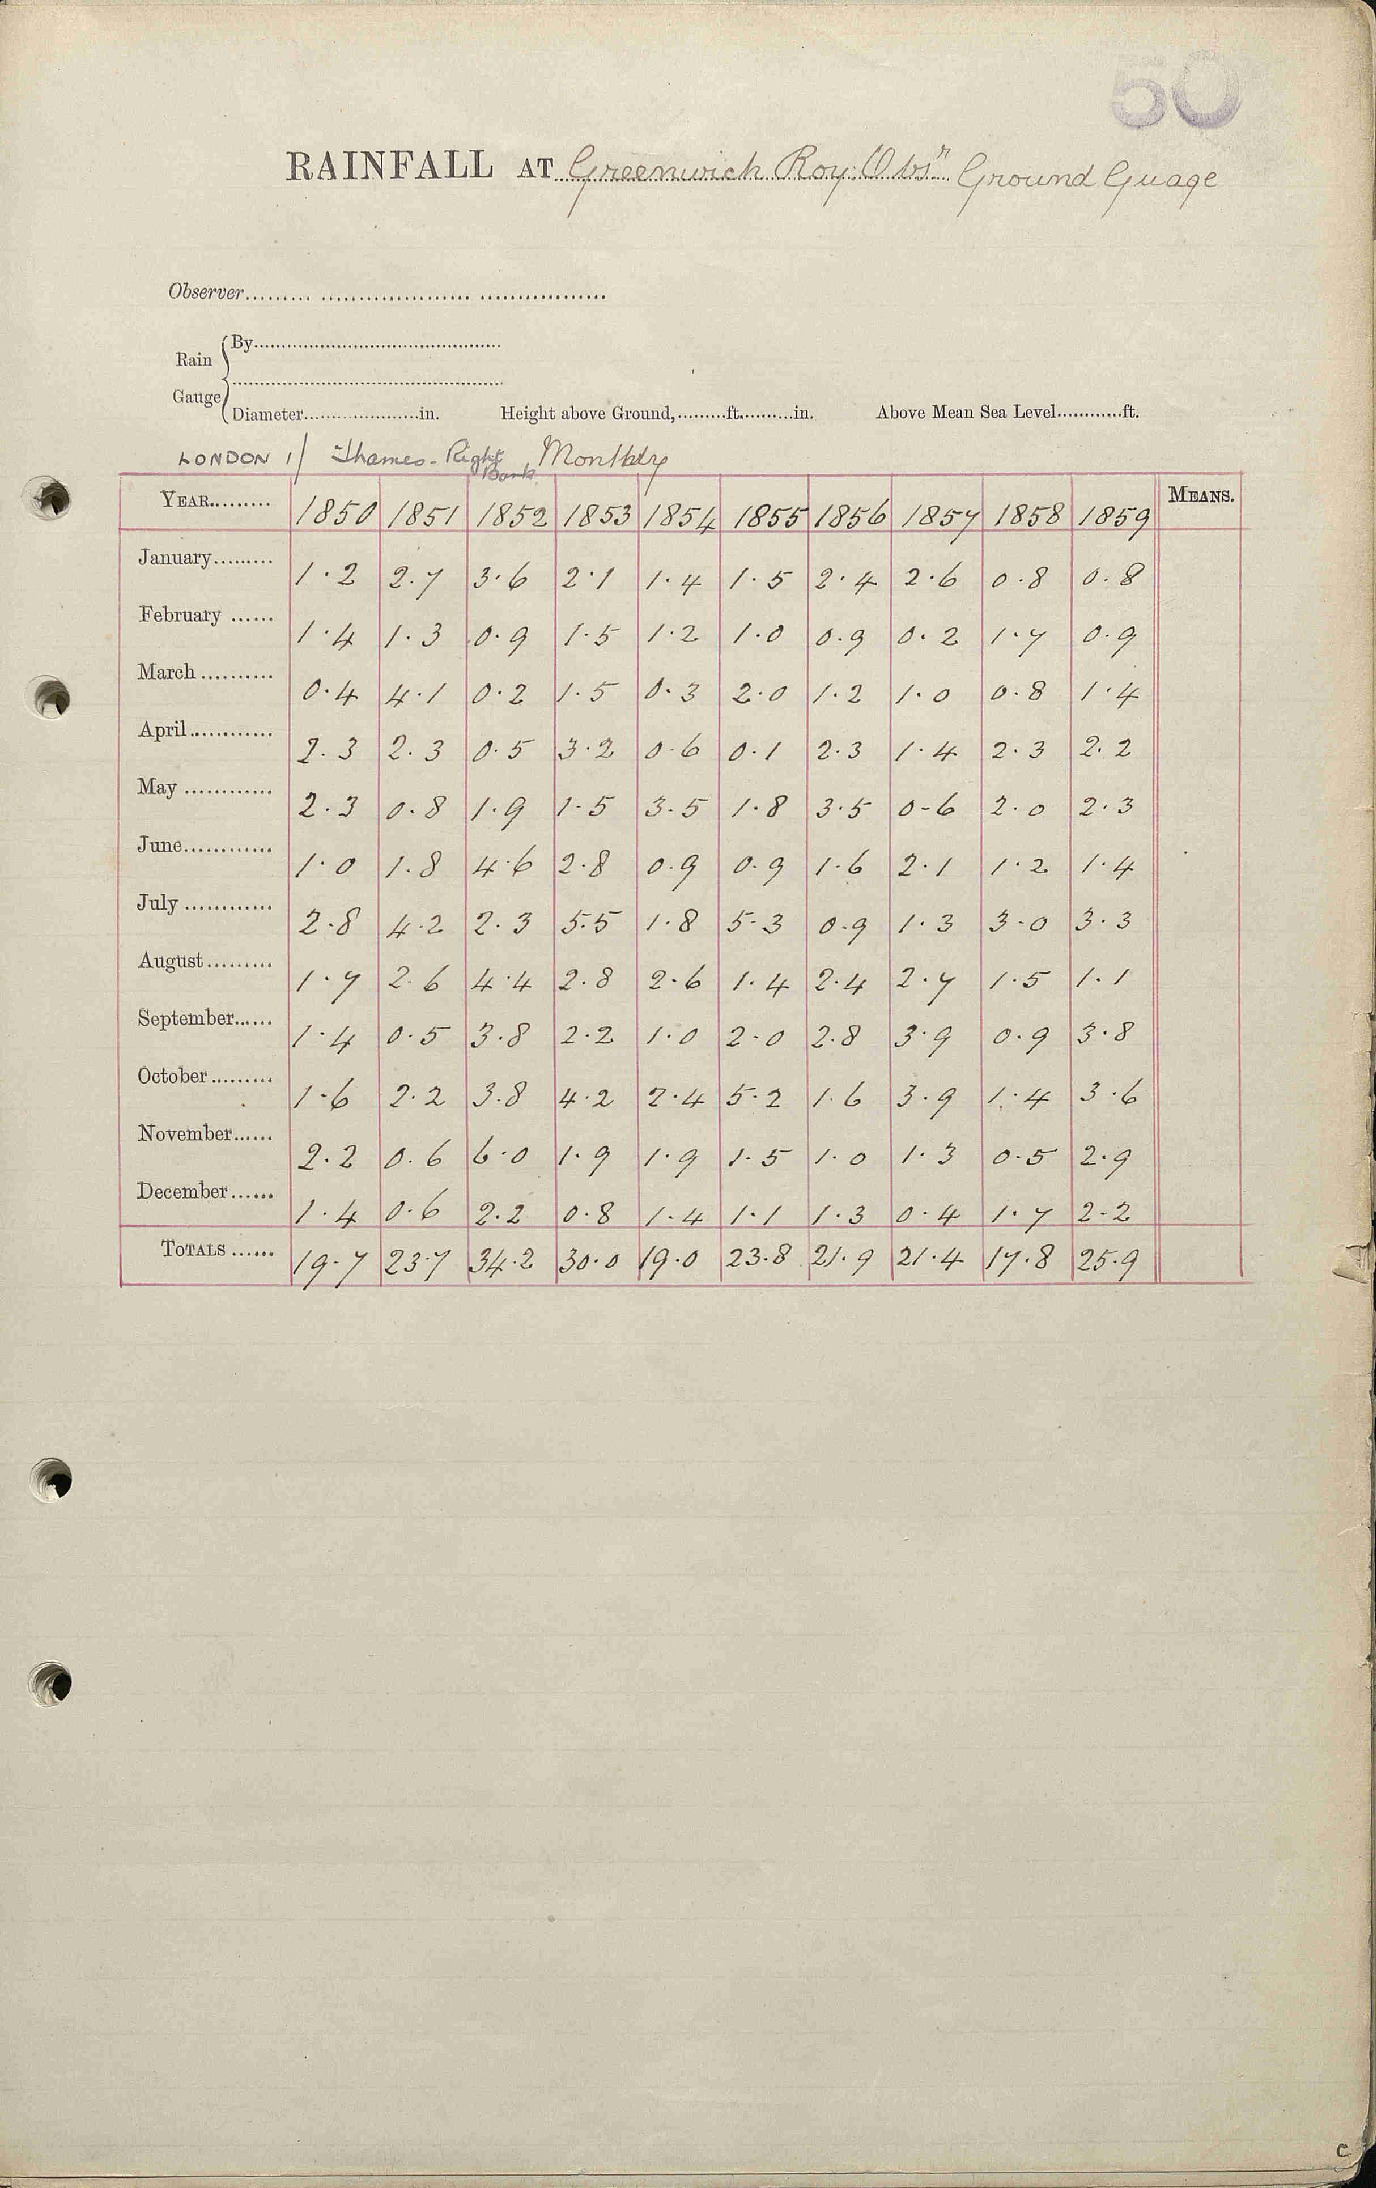 50
RAINFALL AT Greenwich Roy. Obsʳ Ground Guage
Observer
Rain Gauge { By
Diameter in. Height above Ground, ft. in. Above Mean Sea Level ft.
LONDON 1/ Thames - Right Bank Monthly
YEAR 1850 1851 1852 1853 1854 1855 1856 1857 1858 1859 MEANS.
January 1.2 2.7 3.6 2.1 1.4 1.5 2.4 2.6 0.8 0.8
February 1.4 1.3 0.9 1.5 1.2 1.0 0.9 0.2 1.7 0.9
March 0.4 4.1 0.2 1.5 0.3 2.0 1.2 1.0 0.8 1.4
April 2.3 2.3 0.5 3.2 0.6 0.1 2.3 1.4 2.3 2.2
May 2.3 0.8 1.9 1.5 3.5 1.8 3.5 0.6 2.0 2.3
June 1.0 1.8 4.6 2.8 0.9 0.9 1.6 2.1 1.2 1.4
July 2.8 4.2 2.3 5.5 1.8 5.3 0.9 1.3 3.0 3.3
August 1.7 2.6 4.4 2.8 2.6 1.4 2.4 2.7 1.5 1.1
September 1.4 0.5 3.8 2.2 1.0 2.0 2.8 3.9 0.9 3.8
October 1.6 2.2 3.8 4.2 2.4 5.2 1.6 3.9 1.4 3.6
November 2.2 0.6 6.0 1.9 1.9 1.5 1.0 1.3 0.5 2.9
December 1.4 0.6 2.2 0.8 1.4 1.1 1.3 0.4 1.7 2.2
TOTALS 19.7 23.7 34.2 30.0 19.0 23.8 21.9 21.4 17.8 25.9
C